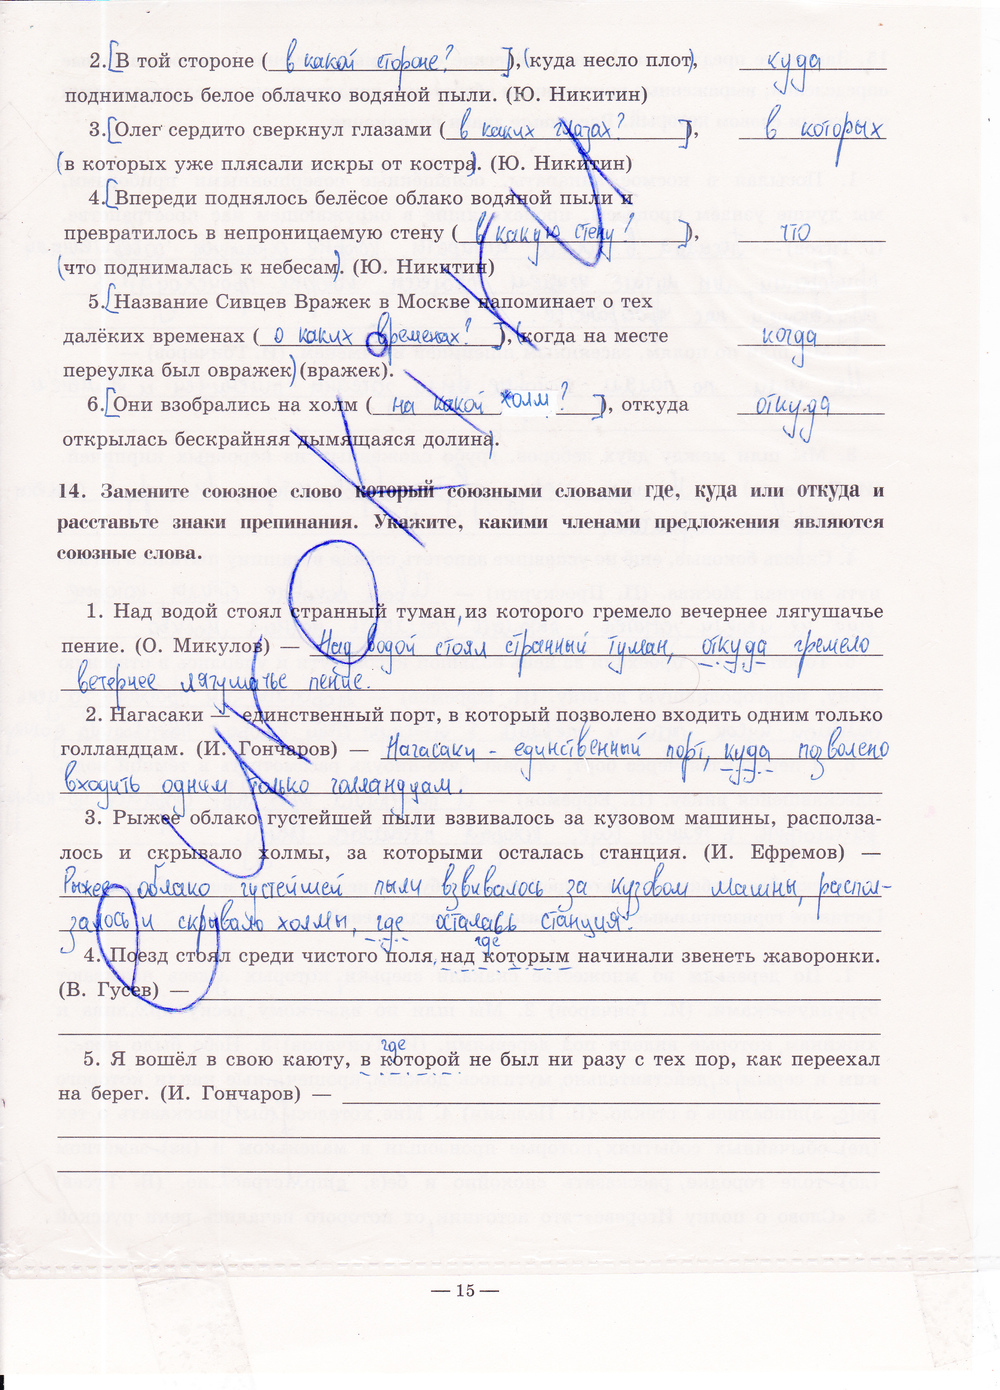 2. [В той стороне ( в какой стороне? )], (куда несло плот), куда
поднималось белое облачко водяной пыли. (Ю. Никитин)
3. [Олег сердито сверкнул глазами ( в каких глазах? )], в которых
(в которых уже плясали искры от костра). (Ю. Никитин)
4. [Впереди поднялось белёсое облако водяной пыли и
превратилось в непроницаемую стену ( в какую стену? )], что
(что поднималась к небесам). (Ю. Никитин)
5. [Название Сивцев Вражек в Москве напоминает о тех
далёких временах ( о каких временах? )], (когда на месте когда
переулка был овражек) (вражек).
6. [Они взобрались на холм ( на какой холм? )], откуда откуда
открылась бескрайняя дымящаяся долина.
14. Замените союзное слово который союзными словами где, куда или откуда и
расставьте знаки препинания. Укажите, какими членами предложения являются
союзные слова.
1. Над водой стоял странный туман, из которого гремело вечернее лягушачье
пение. (О. Микулов) — Над водой стоял странный туман, откуда гремело
вечернее лягушачье пение.
2. Нагасаки — единственный порт, в который позволено входить одним только
голландцам. (И. Гончаров) — Нагасаки - единственный порт, куда позволено
входить одним только голландцам.
3. Рыжее облако густейшей пыли взвивалось за кузовом машины, располза-
лось и скрывало холмы, за которыми осталась станция. (И. Ефремов) —
Рыжее облако густейшей пыли взвивалось за кузовом машины, распол-
залось и скрывало холмы, где осталась станция.
где
4. Поезд стоял среди чистого поля, над которым начинали звенеть жаворонки.
(В. Гусев) —
где
5. Я вошёл в свою каюту, в которой не был ни разу с тех пор, как переехал
на берег. (И. Гончаров) —
— 15 —